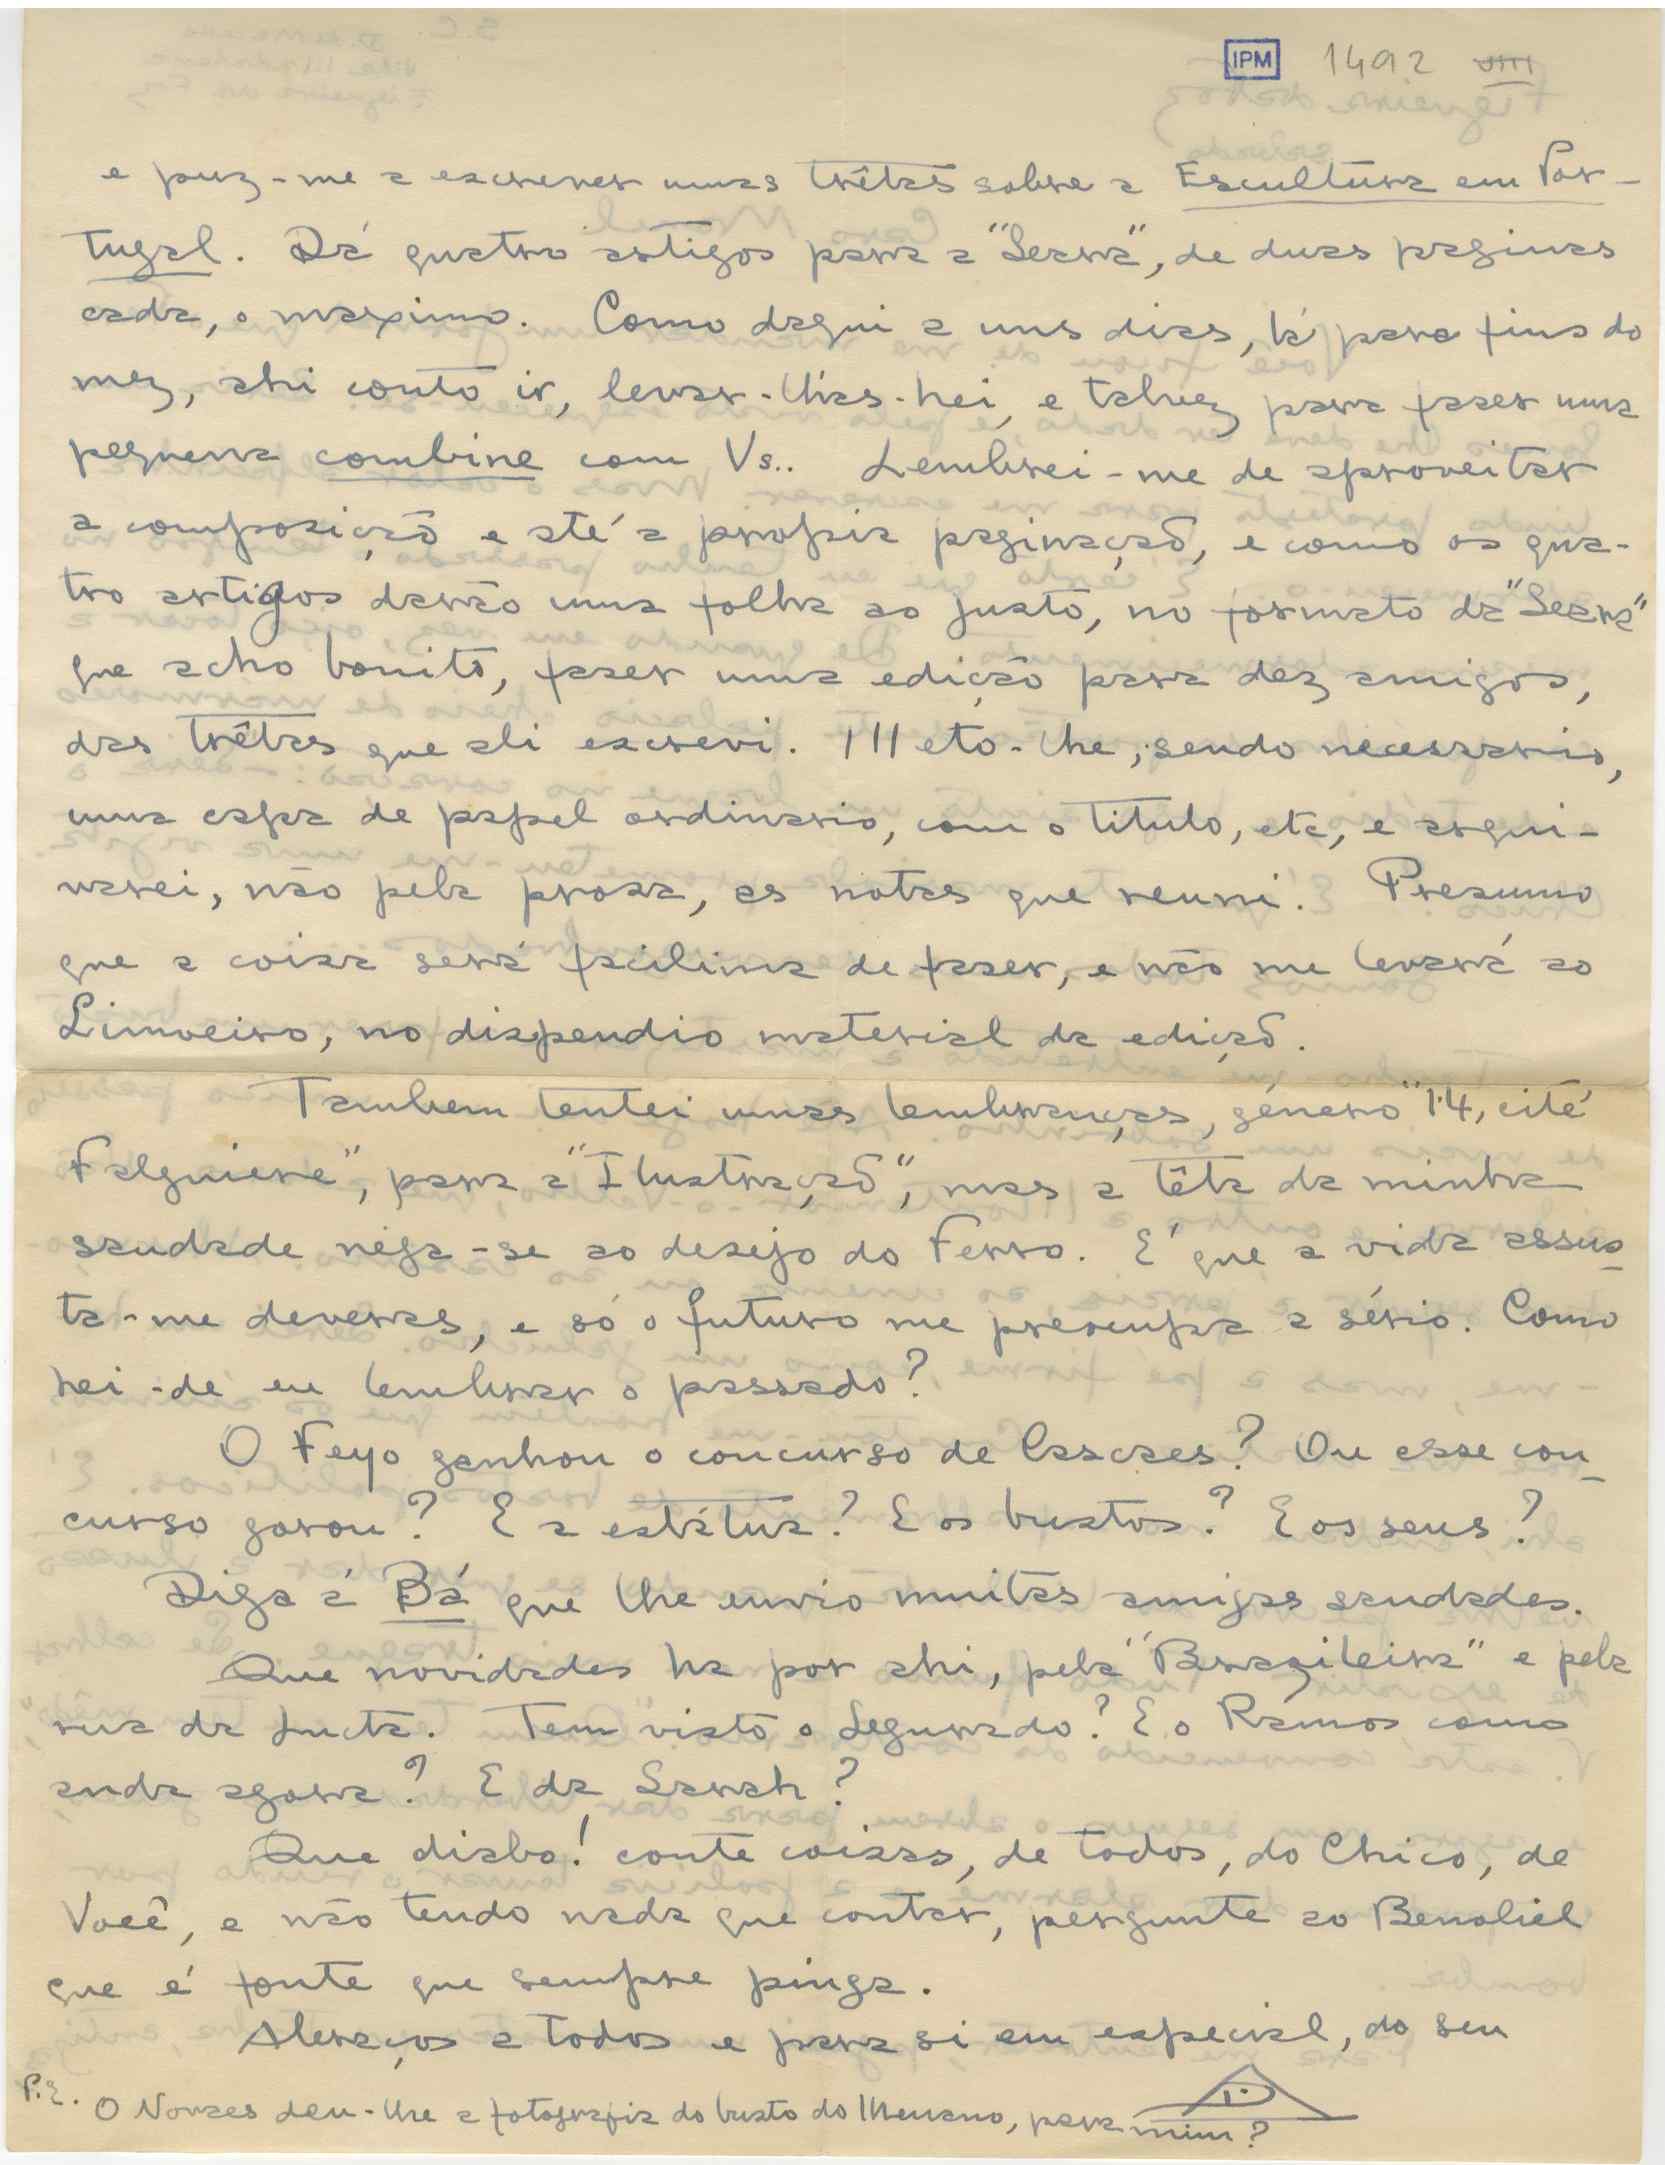 IPM 1492 VIII
e puz-me a escrever umas trêtas sobre a Escultura em Por-
tugal. Dá quatro artigos para a "Seara", de duas paginas
cada, o maximo. Como daqui a uns dias, lá para fins do
mez, ahi conto ir, levar-lhas-hei, e talvez para fazer uma
pequena combine com Vs.. Lembrei-me de aproveitar
a composição e até a propria paginação, e como os qua-
tro artigos darão uma folha ao justo, no formato da "Seara"
que acho bonito, fazer uma edição para dez amigos,
das trêtas que ali escrevi. Meto-lhe, sendo necessario,
uma capa de papel ordinario, com o titulo, etc, e arqui-
varei, não pela prosa, as notas que reuni. Presumo
que a coisa será facilima de fazer, e não me levará ao
Limoeiro, no dispendio material da edição.
Tambem tentei umas lembranças, género "14, cité
Falguiere", para a "Ilustração", mas a têta da minha
saudade néga-se ao desejo do Ferro. E' que a vida assus-
ta-me deveras, e só o futuro me preocupa a sério. Como
hei-de eu lembrar o passado?
O Feyo ganhou o concurso de Cascaes? Ou esse con-
curso gorou? E a estátua? E os bustos? E os seus?
Diga á Bá que lhe envio muitas amigas saudades.
Que novidades ha por ahi, pela "Brazileira" e pela
rua da Lucta. Tem visto o Segurado? E o Ramos como
anda agora? E da Sarah?
Que diabo! conte coisas, de todos, do Chico, de
Você, e não tendo nada que contar, pergunte ao Benoliel
que é fonte que sempre pinga.
Abraços a todos e para si em especial, do seu
D.
P.S. O Novaes deu-lhe a fotografia do busto do Menano, para mim?